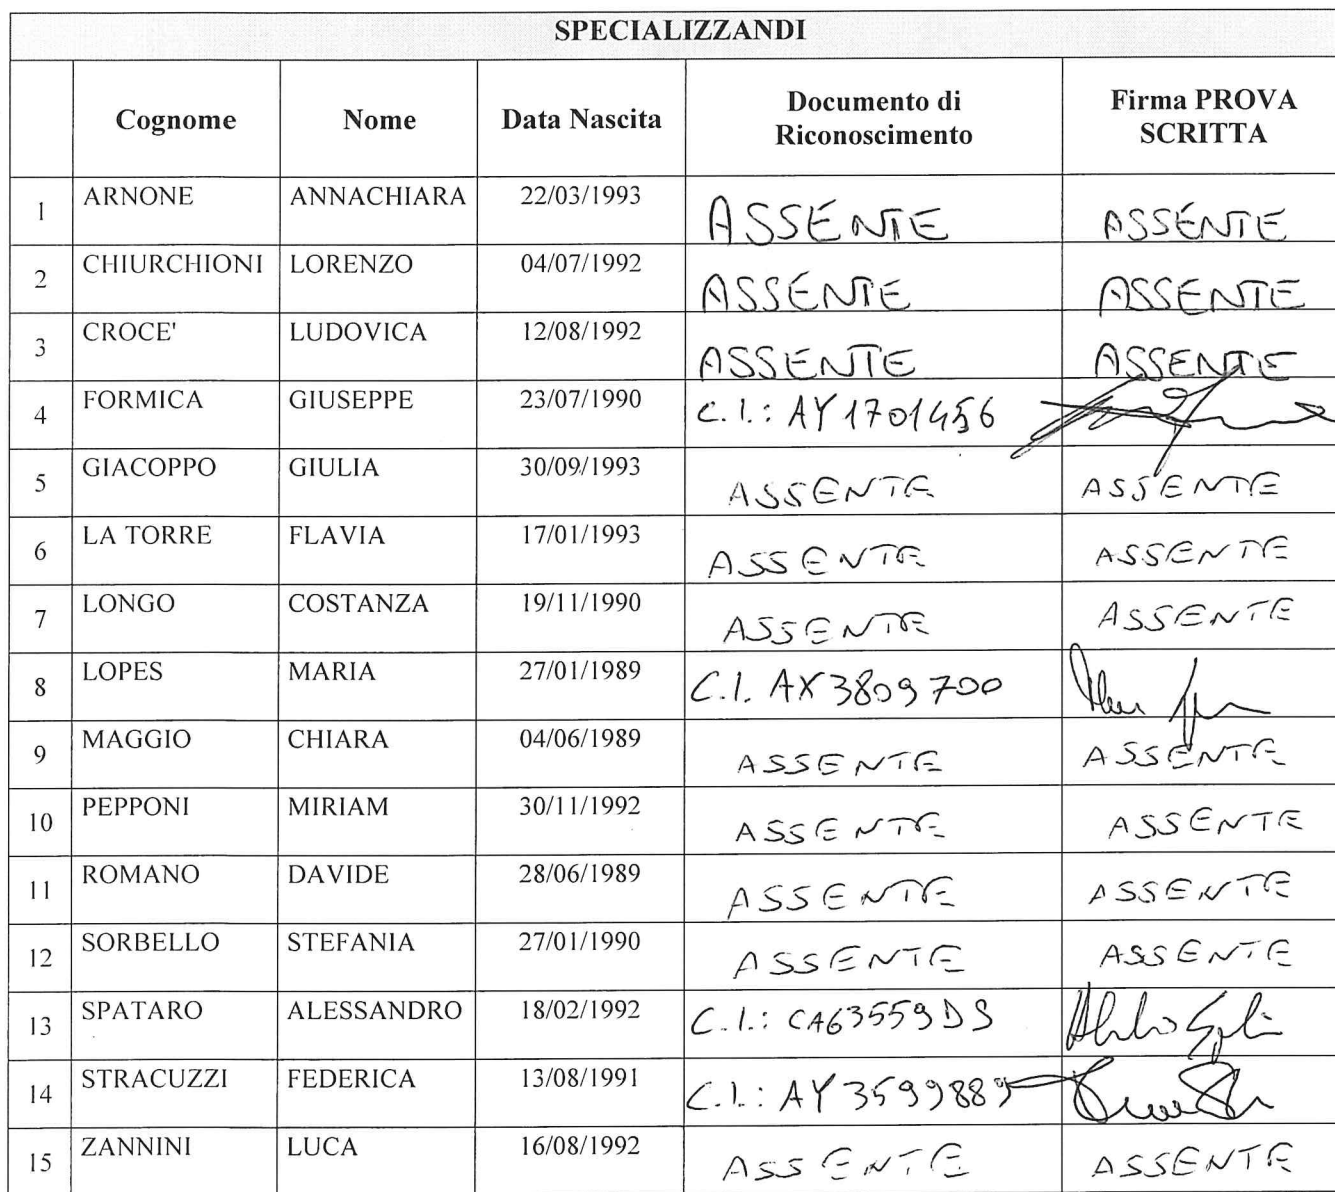 SPECIALIZZANDI
Cognome Nome Data Nascita Documento di Riconoscimento Firma PROVA SCRITTA
1 ARNONE ANNACHIARA 22/03/1993 ASSENTE ASSENTE
2 CHIURCHIONI LORENZO 04/07/1992 ASSENTE ASSENTE
3 CROCE' LUDOVICA 12/08/1992 ASSENTE ASSENTE
4 FORMICA GIUSEPPE 23/07/1990 C.I.: AY1701456
5 GIACOPPO GIULIA 30/09/1993 ASSENTE ASSENTE
6 LA TORRE FLAVIA 17/01/1993 ASSENTE ASSENTE
7 LONGO COSTANZA 19/11/1990 ASSENTE ASSENTE
8 LOPES MARIA 27/01/1989 C.I. AX3809700
9 MAGGIO CHIARA 04/06/1989 ASSENTE ASSENTE
10 PEPPONI MIRIAM 30/11/1992 ASSENTE ASSENTE
11 ROMANO DAVIDE 28/06/1989 ASSENTE ASSENTE
12 SORBELLO STEFANIA 27/01/1990 ASSENTE ASSENTE
13 SPATARO ALESSANDRO 18/02/1992 C.I.: CA63559DS
14 STRACUZZI FEDERICA 13/08/1991 C.I.: AY3599889
15 ZANNINI LUCA 16/08/1992 ASSENTE ASSENTE